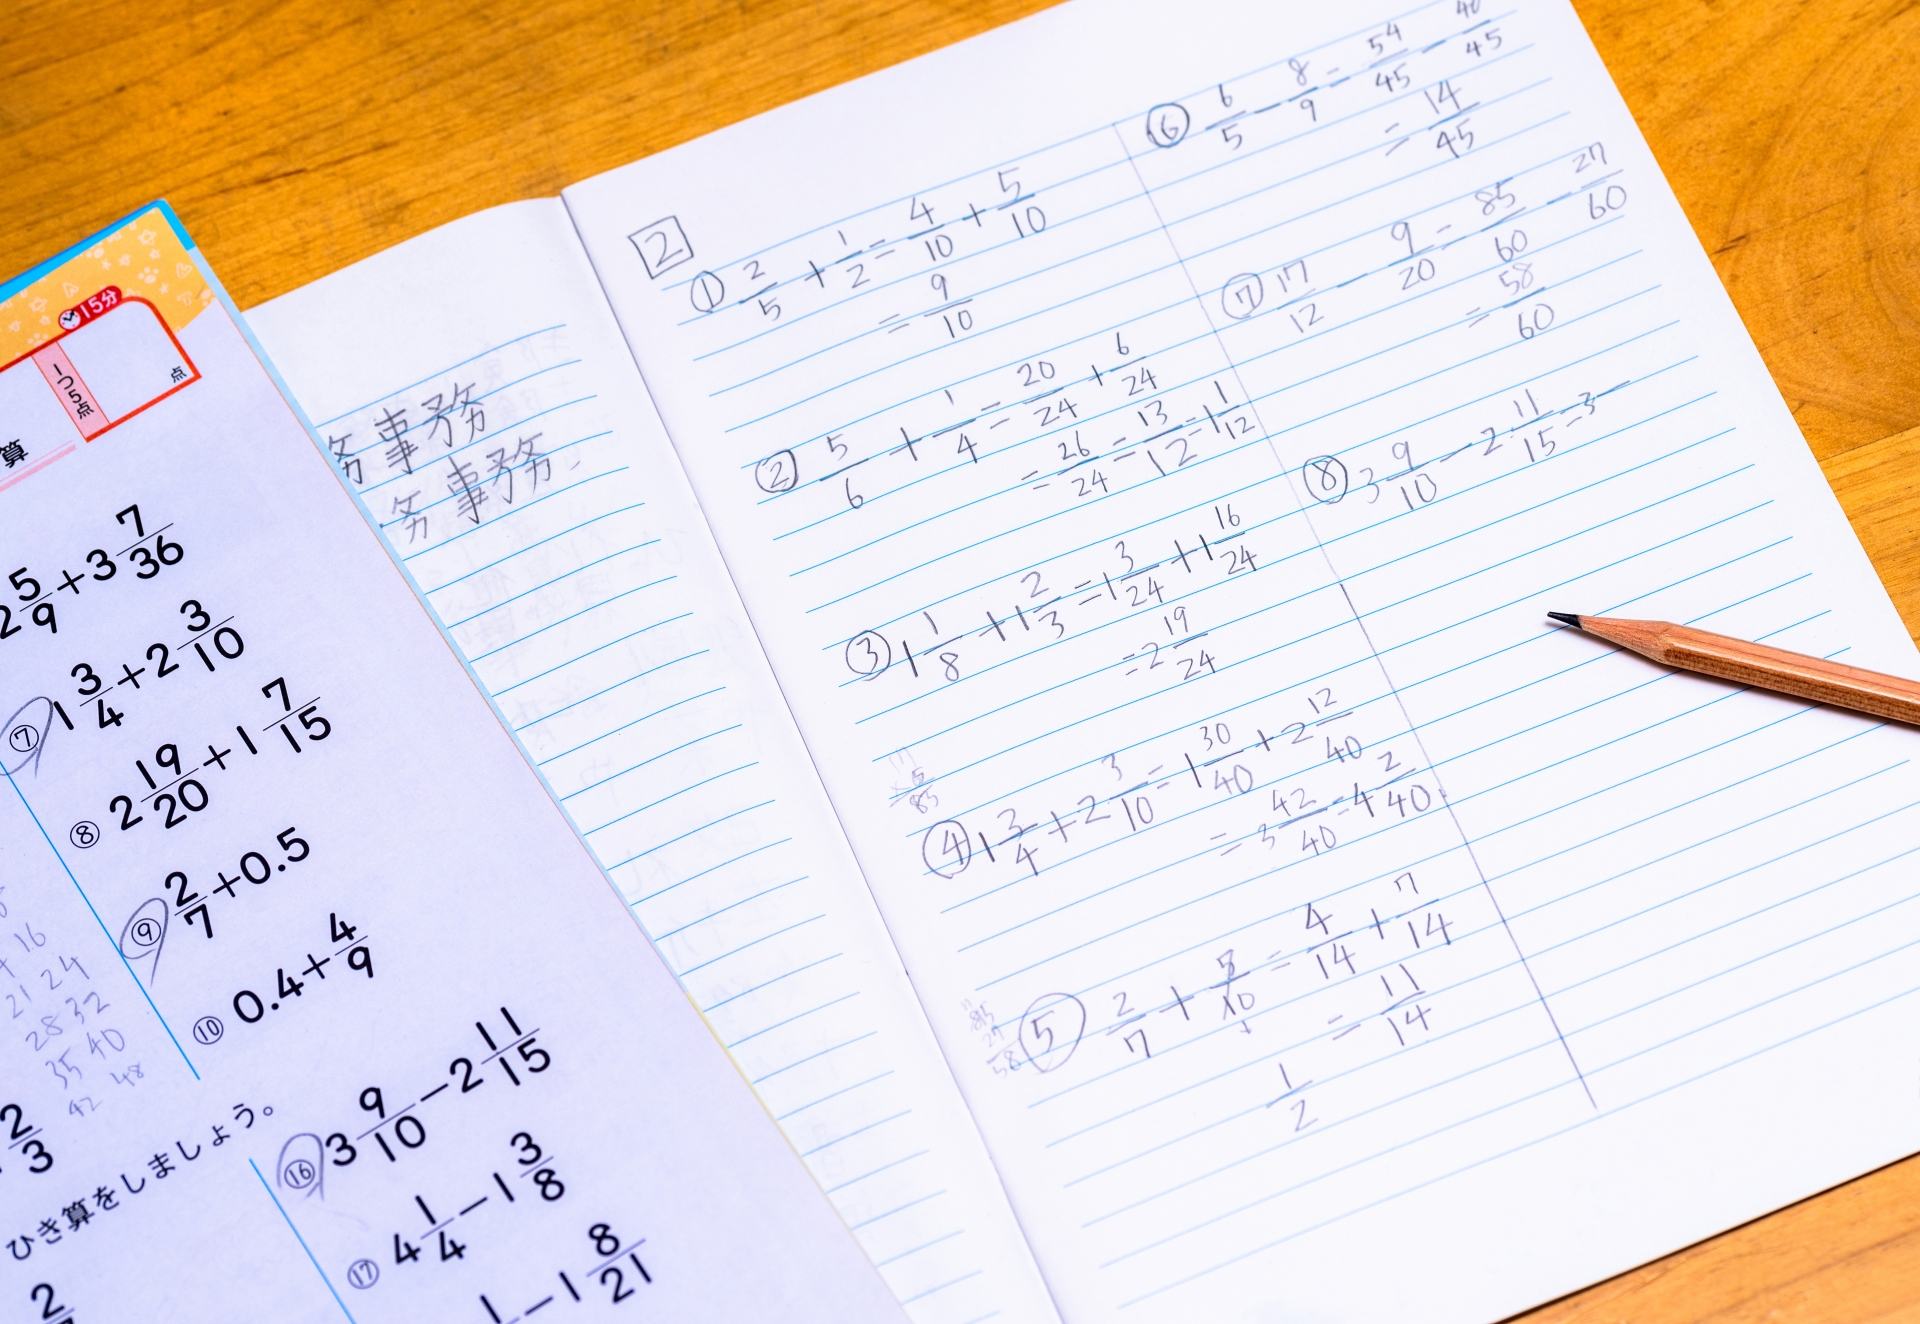 15分
1つ5点
点
算
2 5/9 + 3 7/36
⑦ 1 3/4 + 2 3/10
⑧ 2 19/20 + 1 7/15
⑨ 2/7 + 0.5
⑩ 0.4 + 4/9
16
21 24
28 32
35 40
42 48
2/3
ひき算をしましょう。
⑯ 3 9/10 - 2 11/15
⑰ 4 1/4 - 1 3/8
- 1 8/21
務事務
務事務
2
① 2/5 + 1/2 = 4/10 + 5/10
= 9/10
② 5/6 + 1/4 = 20/24 + 6/24
= 26/24 = 13/12 = 1 1/12
③ 1 1/8 + 1 2/3 = 1 3/24 + 1 16/24
= 2 19/24
④ 1 3/4 + 2 3/10 = 1 30/40 + 2 12/40
= 3 42/40 = 4 2/40
⑤ 2/7 + 5/10 = 4/14 + 7/14
= 11/14
1/2
⑥ 6/5 - 8/9 = 54/45 - 40/45
= 14/45
⑦ 17/12 - 9/20 = 85/60 - 27/60
= 58/60
⑧ 3 9/10 - 2 11/15 = 3